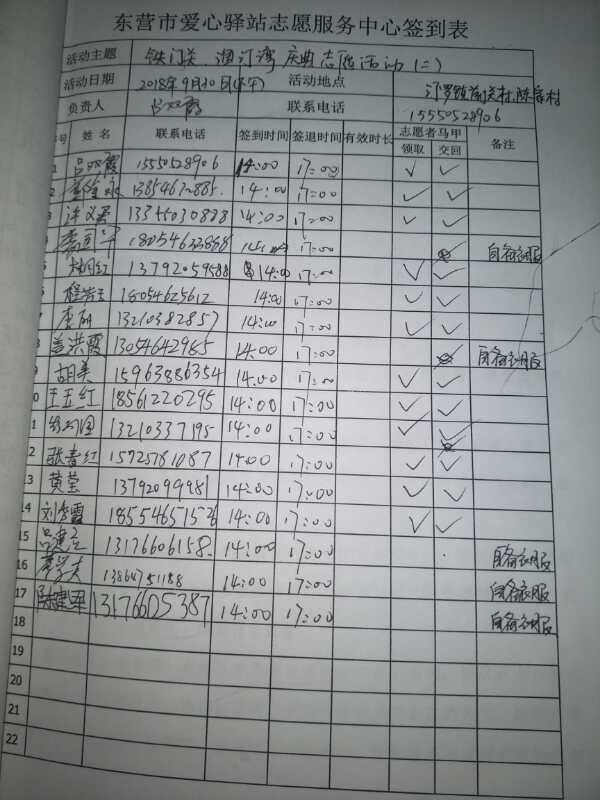 东营市爱心驿站志愿服务中心签到表
活动主题 铁门关 酒汀湾 庆典志愿活动(二)
活动日期 2018年9月20日(下午) 活动地点 汀罗镇前关村,陈家村
负责人 吕双霞 联系电话 15550528906
号 姓名 联系电话 签到时间 签退时间 有效时长 志愿者马甲 备注
领取 交回
1 吕双霞 15550528906 14:00 17:00 ✓ ✓
2 13854632885. 14:00 17:00 ✓ ✓
3 许义军 13355030888 14:00 17:00 ✓ ✓
18054633888 17:00 自备衣服
5 红 13792059588 14:00 17:00 ✓ ✓
6 18054625612 14:00 17:00 ✓ ✓
7 李丽 13210382857 14:00 17:00 ✓ ✓
8 盖洪霞 13054642985 14:00 17:00 自备衣服
9 胡美 15963886354 14:00 17:00 ✓ ✓
0 王玉红 18561220295 14:00 17:00 ✓ ✓
1 13210337195 14:00 17:00 ✓ ✓
2 张春红 15725781087 14:00 17:00 ✓ ✓
13 黄莹 13792099981 14:00 17:00 ✓ ✓
14 刘秀霞 14:00 17:00 ✓ ✓
15 吕建 13176606158. 14:00 17:00 自备衣服
16 13864751188 14:00 17:00 自备衣服
17 陈建军 13176605387 14:00 17:00 自备衣服
18
19
20
21
22